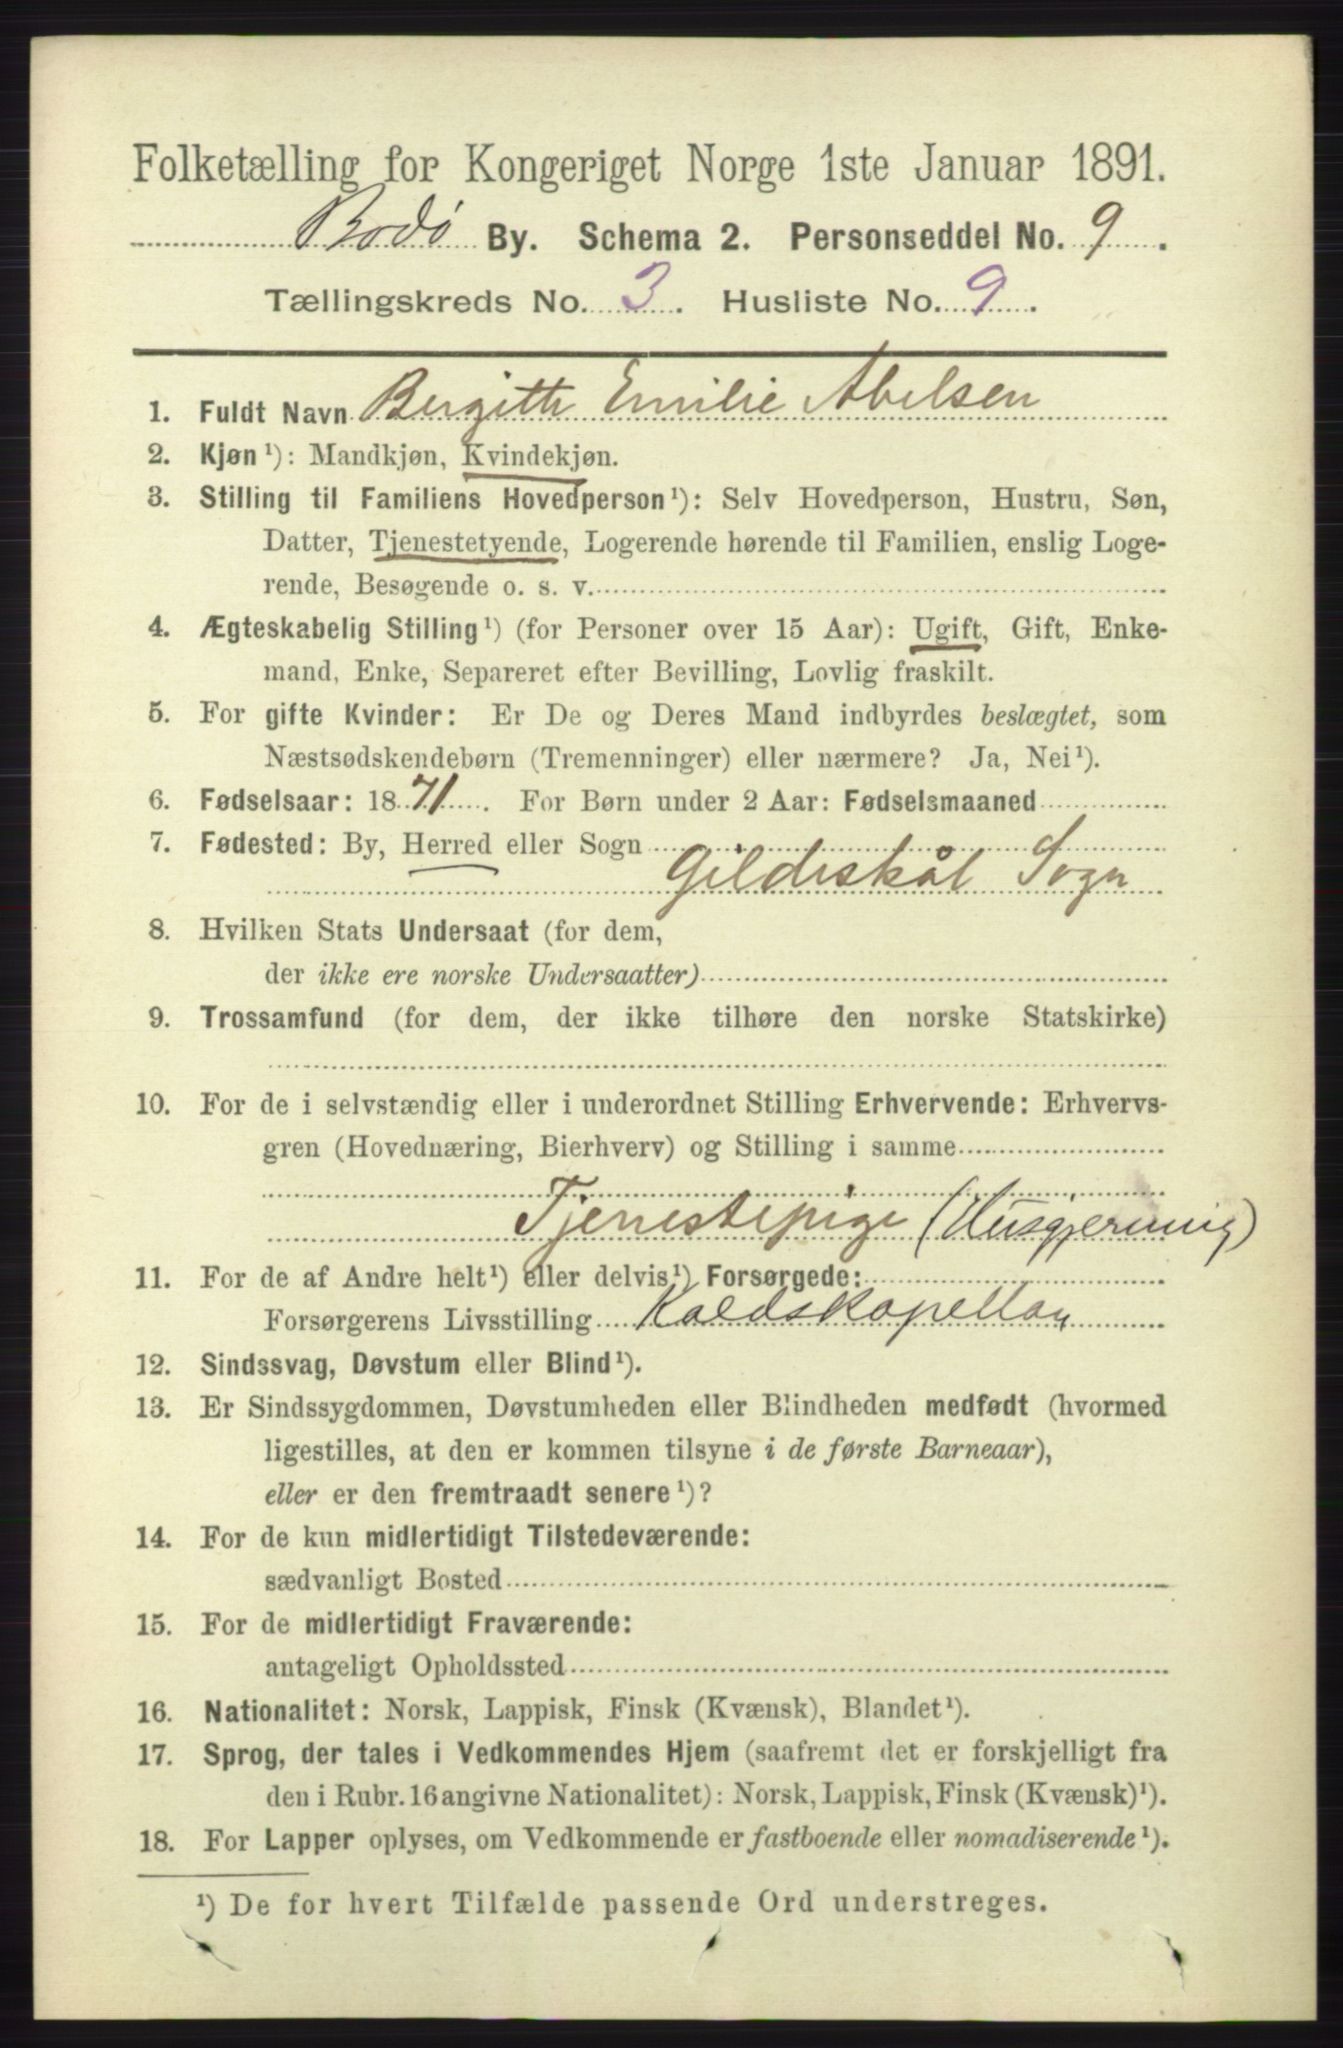 Folketælling for Kongeriget Norge 1ste Januar 1891.
Bodø By. Schema 2. Personseddel No. 9.
Tællingskreds No. 3. Husliste No. 9.
1. Fuldt Navn Bergitte Emilie Abelsen
2. Kjøn ¹): Mandkjøn, Kvindekjøn.
3. Stilling til Familiens Hovedperson ¹): Selv Hovedperson, Hustru, Søn,
Datter, Tjenestetyende, Logerende hørende til Familien, enslig Loge-
rende, Besøgende o. s. v.
4. Ægteskabelig Stilling ¹) (for Personer over 15 Aar): Ugift, Gift, Enke-
mand, Enke, Separeret efter Bevilling, Lovlig fraskilt.
5. For gifte Kvinder: Er De og Deres Mand indbyrdes beslægtet, som
Næstsødskendebørn (Tremenninger) eller nærmere? Ja, Nei ¹).
6. Fødselsaar: 1871. For Børn under 2 Aar: Fødselsmaaned
7. Fødested: By, Herred eller Sogn
Gildeskål Sogn
8. Hvilken Stats Undersaat (for dem,
der ikke ere norske Undersaatter)
9. Trossamfund (for dem, der ikke tilhøre den norske Statskirke)
10. For de i selvstændig eller i underordnet Stilling Erhvervende: Erhvervs-
gren (Hovednæring, Bierhverv) og Stilling i samme
Tjenestepige (Husgjerning)
11. For de af Andre helt ¹) eller delvis ¹) Forsørgede:
Forsørgerens Livsstilling Kaldskapellan
12. Sindssvag, Døvstum eller Blind ¹).
13. Er Sindssygdommen, Døvstumheden eller Blindheden medfødt (hvormed
ligestilles, at den er kommen tilsyne i de første Barneaar),
eller er den fremtraadt senere ¹)?
14. For de kun midlertidigt Tilstedeværende:
sædvanligt Bosted
15. For de midlertidigt Fraværende:
antageligt Opholdssted
16. Nationalitet: Norsk, Lappisk, Finsk (Kvænsk), Blandet ¹).
17. Sprog, der tales i Vedkommendes Hjem (saafremt det er forskjelligt fra
den i Rubr. 16 angivne Nationalitet): Norsk, Lappisk, Finsk (Kvænsk) ¹).
18. For Lapper oplyses, om Vedkommende er fastboende eller nomadiserende ¹).
¹) De for hvert Tilfælde passende Ord understreges.